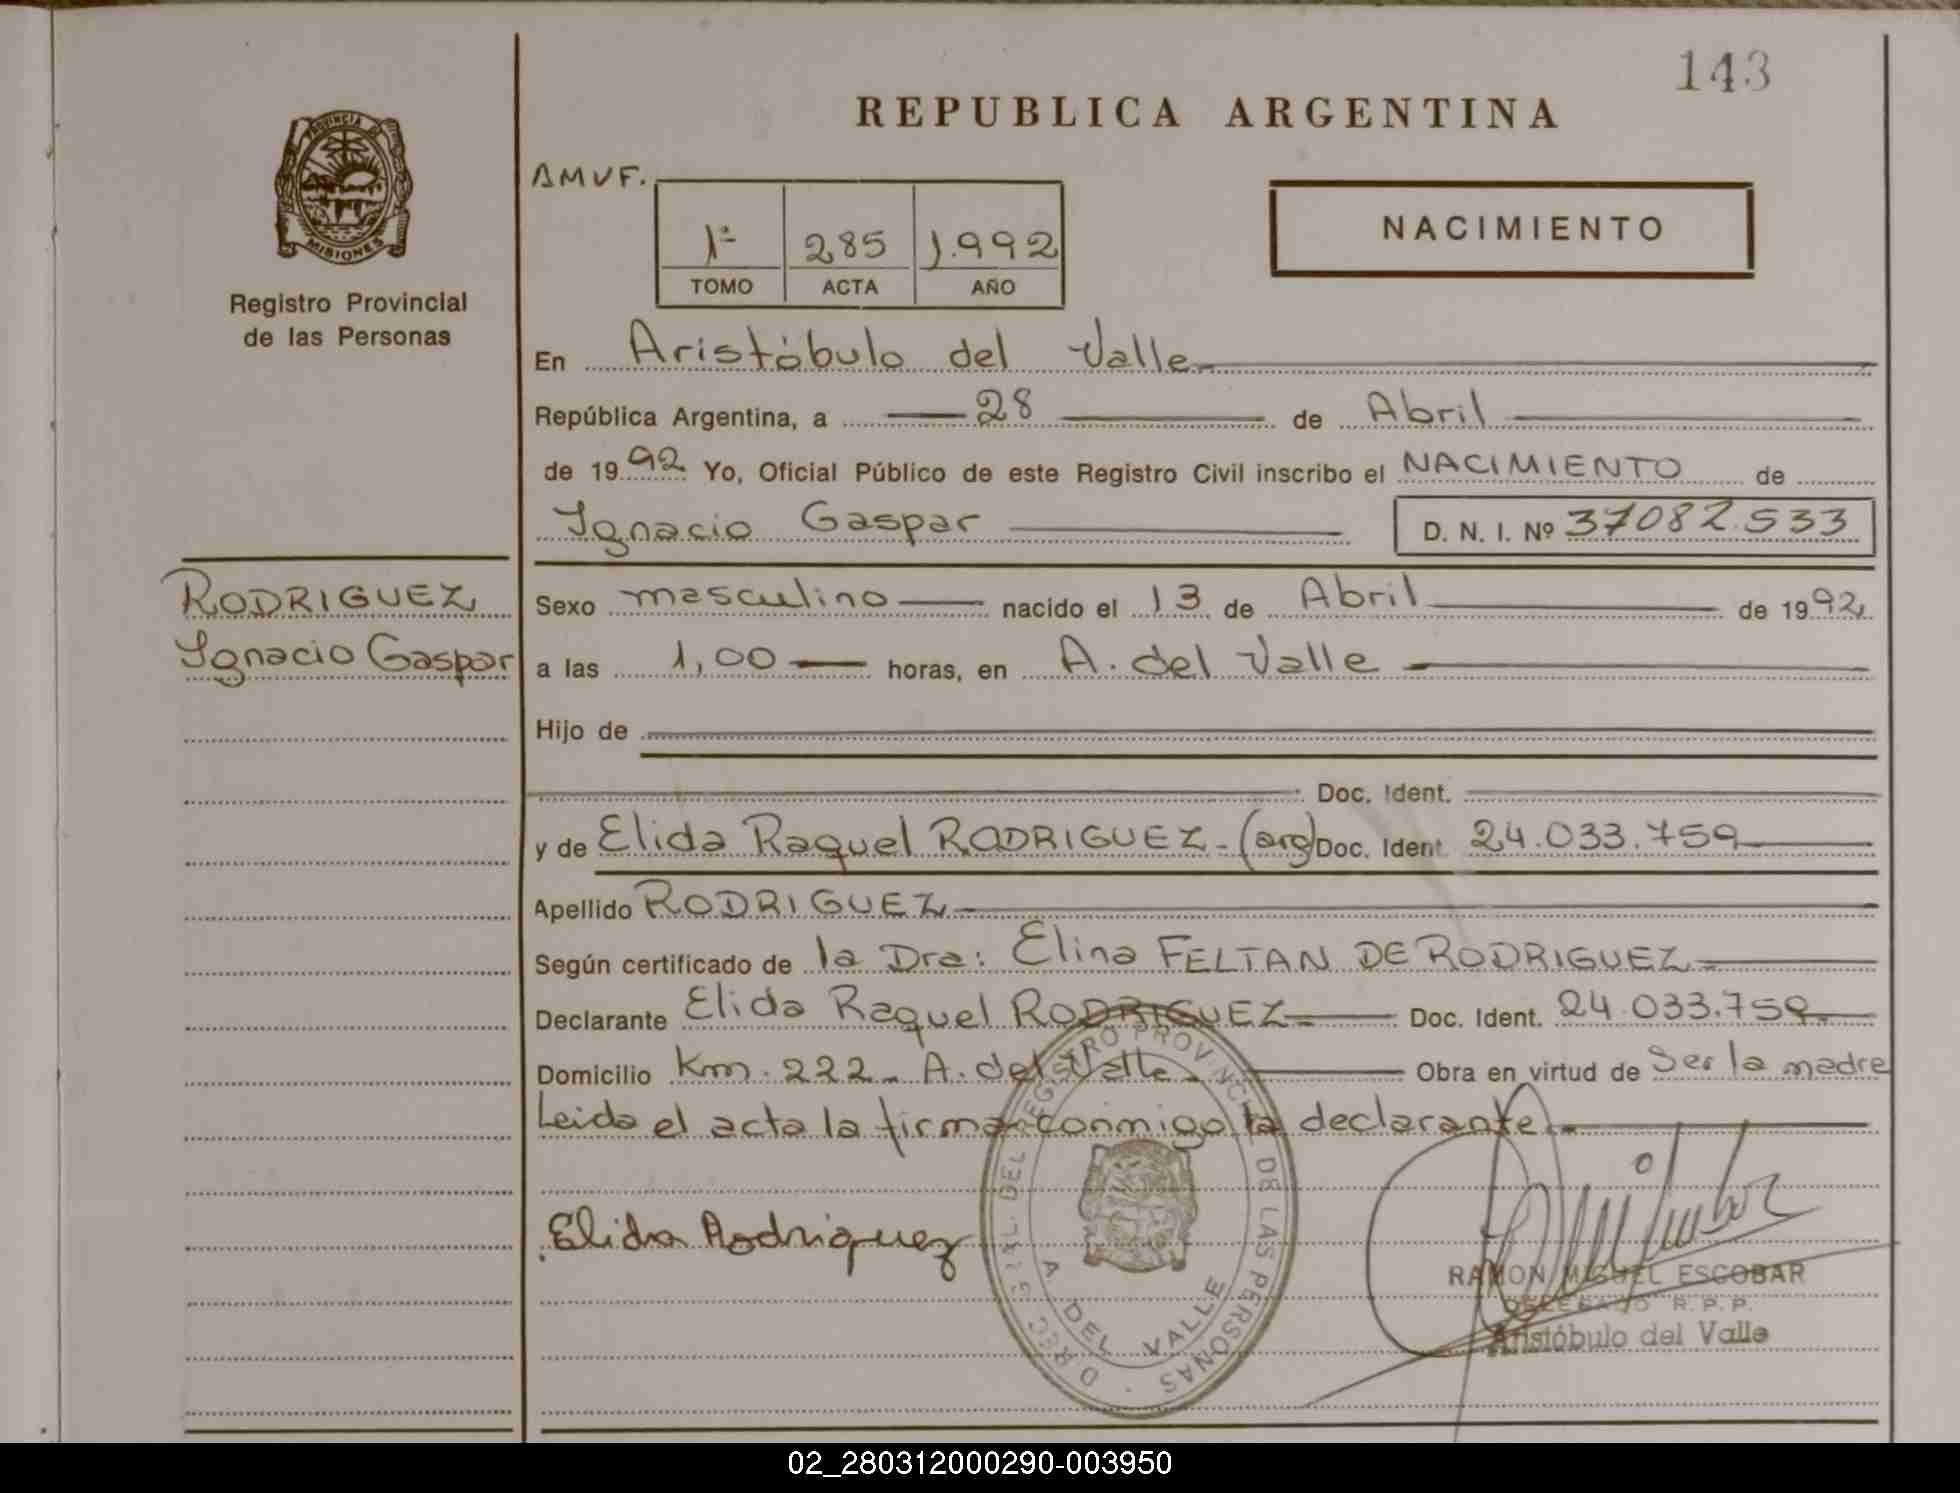 143
REPUBLICA ARGENTINA
PROVINCIA DE
MISIONES
Registro Provincial
de las Personas
AMVF.
1º 285 1.992
TOMO ACTA AÑO
NACIMIENTO
En Aristóbulo del Valle
República Argentina, a 28 de Abril
de 1992 Yo, Oficial Público de este Registro Civil inscribo el NACIMIENTO de
Ignacio Gaspar D. N. I. Nº 37082.533
RODRIGUEZ
Ignacio Gaspar
Sexo masculino nacido el 13 de Abril de 1992
a las 1,00 horas, en A. del Valle
Hijo de
Doc. Ident.
y de Elida Raquel RODRIGUEZ - (arg) Doc. Ident. 24.033.759
Apellido RODRIGUEZ
Según certificado de la Dra: Elina FELTAN DE RODRIGUEZ
Declarante Elida Raquel RODRIGUEZ Doc. Ident. 24.033.759
Domicilio Km. 222 - A. del Valle - Obra en virtud de Ser la madre
Leida el acta la firma conmigo la declarante
Elida Rodriguez
DEL REGISTRO PROVINCIAL DE LAS PERSONAS
A DEL VALLE
RAMON MIGUEL ESCOBAR
DELEGADO R. P. P.
Aristóbulo del Valle
02_280312000290-003950